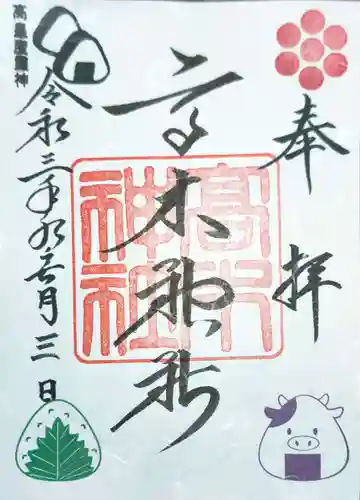 奉拝
高木神社
高木
神社
令和三年月三日
高皇産靈神